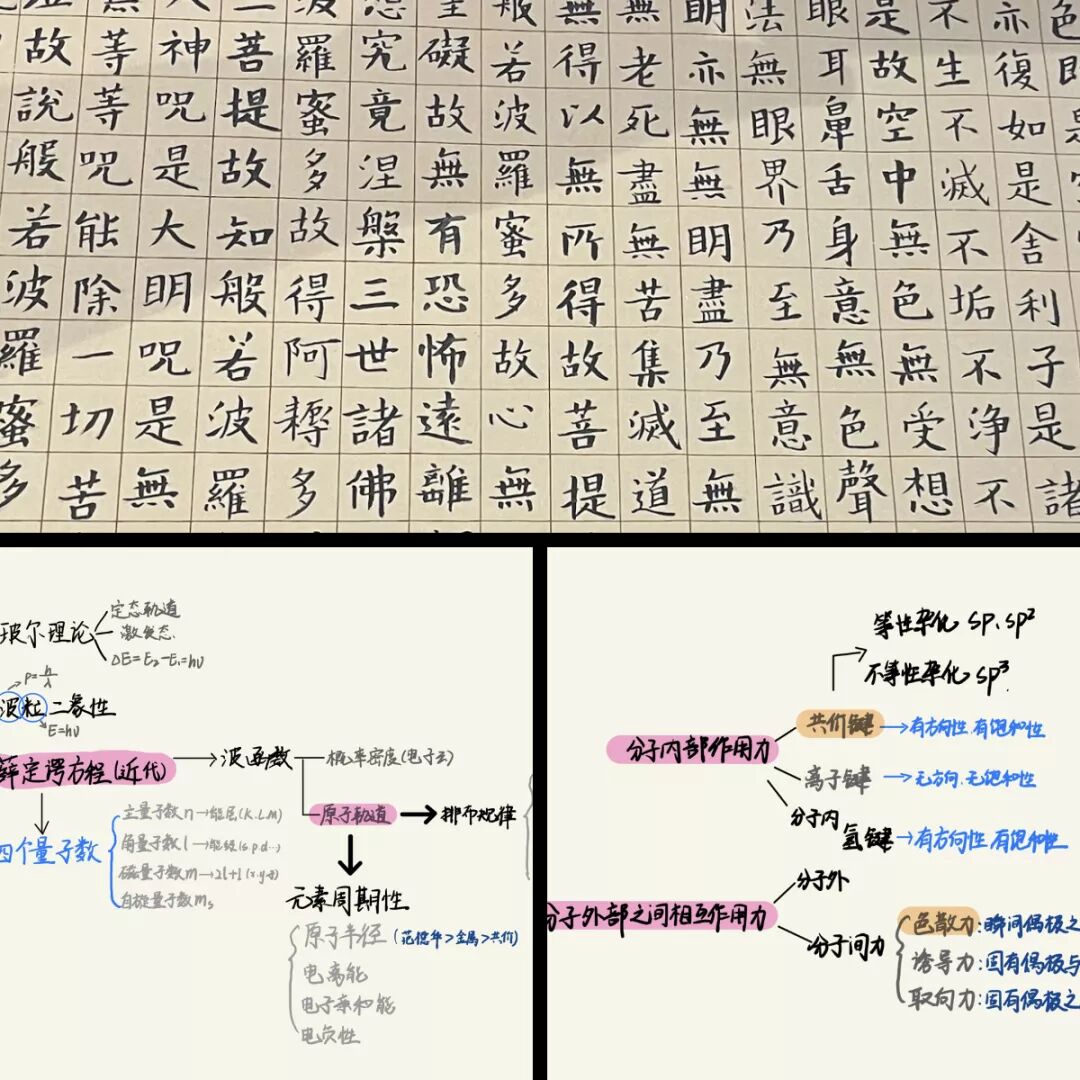 色即是
亦復如是舍利子是諸
不生不滅不垢不淨不
是故空中無色無受想
眼耳鼻舌身意無色聲
法無眼界乃至無意識
明亦無無明盡乃至無
無老死盡無苦集滅道
無得以無所得故菩提
般若波羅蜜多故心無
礙故無有恐怖遠離
究竟涅槃三世諸佛
波羅蜜多故得阿耨多
三菩提故知般若波羅
神咒是大明咒是無
等等咒能除一切苦
故說般若波羅蜜多
玻尔理论
定态轨道
激发态.
ΔE=E₂-E₁=hυ
P=h/λ
波粒二象性
E=hυ
薛定谔方程(近代)
波函数
概率密度(电子云)
原子轨道
排布规律
四个量子数
主量子数n→能层(K.L.M)
角量子数l→能级(s.p.d…)
磁量子数m→2l+1(x.y.z)
自旋量子数mₛ
元素周期性
原子半径(范德华>金属>共价)
电离能
电子亲和能
电负性
等性杂化 sp、sp²
不等性杂化 sp³.
分子内部作用力
共价键→有方向性.有饱和性
离子键→无方向.无饱和性
分子内氢键→有方向性.有饱和性
分子外部之间相互作用力
分子外
分子间力
色散力:瞬间偶极之
诱导力:固有偶极与
取向力:固有偶极之